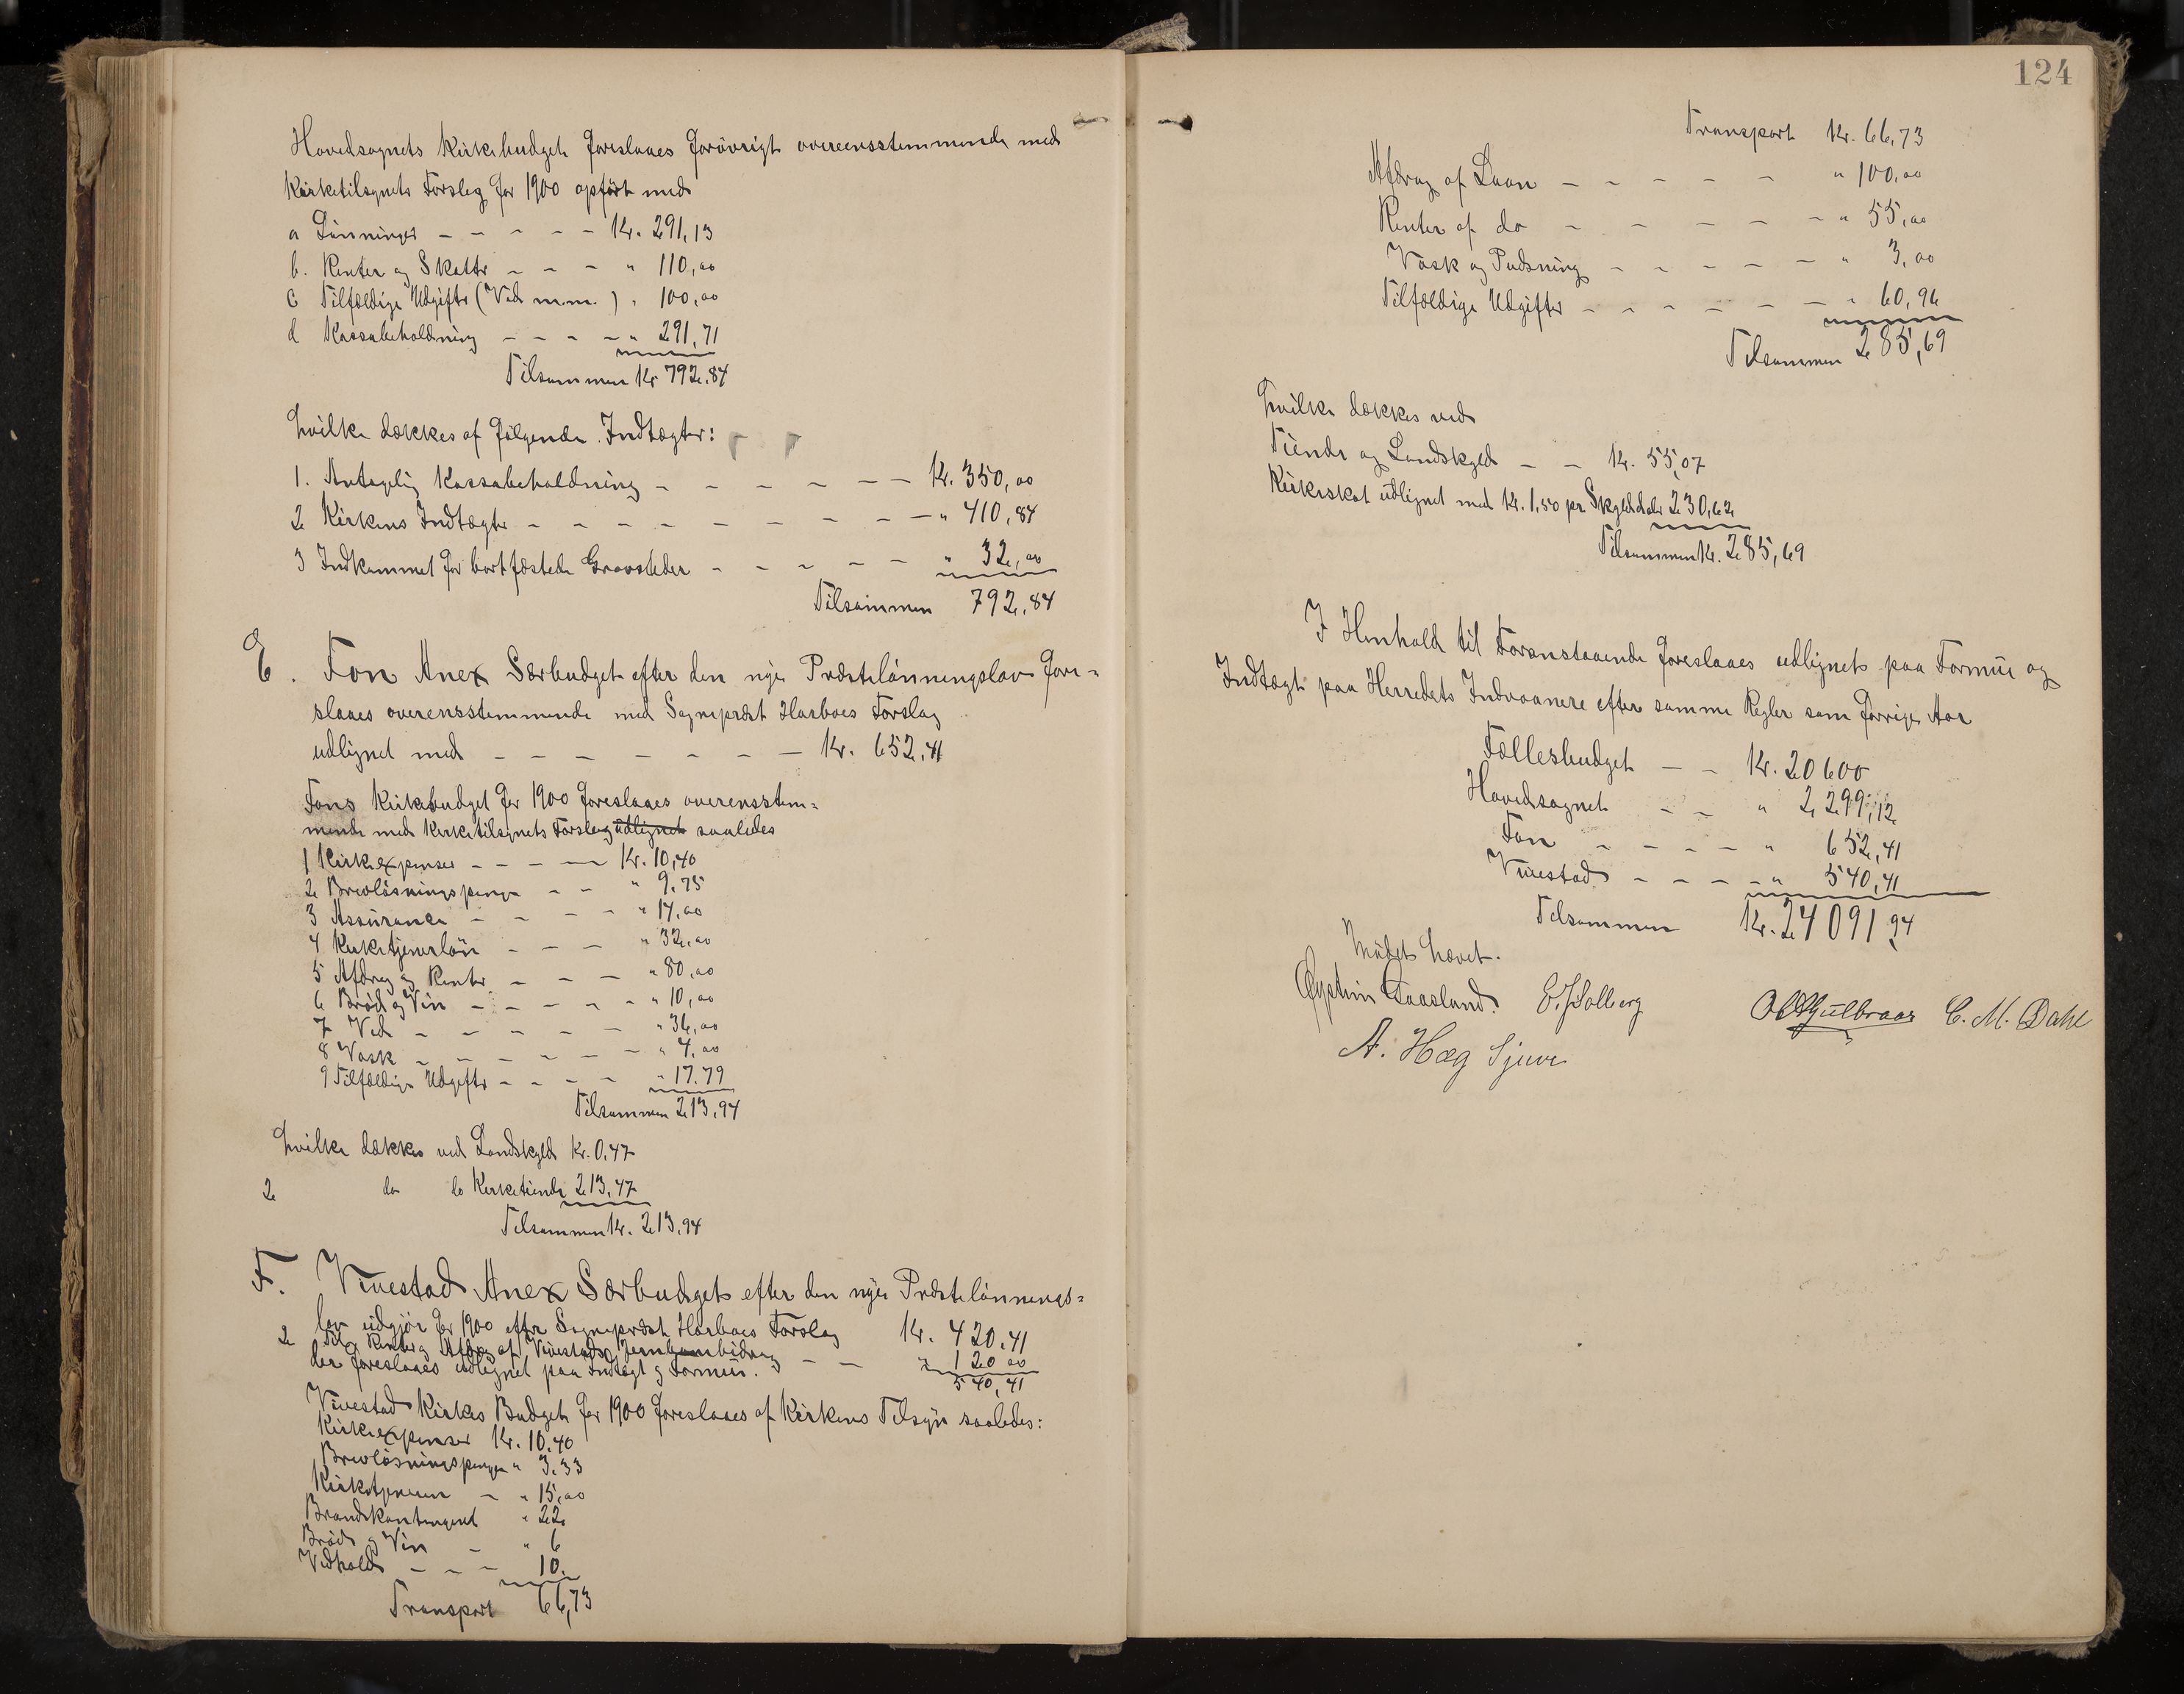 Hovedsognets Kirkebudget foreslaaes forøvrigt overeensstemmende med
Kirketilsynets Forslag for 1900 opført med
a Lønninger - - - - - Kr. 291,13
b. Renter og Skatter - - - " 110,00
c Tilfældige Udgifter (Ved m.m.) " 100,00
d Kassabeholdning - - - - " 291,71
Tilsammen Kr 792.84
hvilke dækkes af følgende Indtægter:
1. Antagelig Kassabeholdning - - - - - - - Kr. 350,00
2 Kirkens Indtægter - - - - - - - - - " 410,84
3 Indkommet for bortfæstede Gravsteder - - - - - " 32,00
Tilsammen 792.84
E. Fon Anex Særbudget efter den nye Præstelønningslov fore=
slaaes overensstemmende med Sogneprest Harboes Forslag
udlignet med - - - - - - - Kr. 652,41
Fons Kirkebudget for 1900 foreslaaes overensstem=
mende med Kirketilsynets Forslag udlignet saaledes
1 Kirkeexpenser - - - - Kr. 10,40
2 Brevløsningspenge - - " 9.75
3 Assürance - - - - " 14,00
4 Kirketjenerløn - - - " 32,00
5 Afdrag og Renter - - - " 80,00
6 Brød og Vin - - - - - " 10,00
7 Ved - - - - - " 36,00
8 Vask - - - - - - " 4,00
9 Tilfældige Udgifter - - - - " 17.79
Tilsammen 213,94
hvilke dækkes ved Landskyld Kr. 0,47
2 do do Kirketiende 213,47
Tilsammen Kr. 213,94
F. Vivestad Anex Særbudget efter den nye Præstelønnings=
lov udgjør for 1900 efter Sogneprest Harboes Forslag Kr. 420,41
2 Til Renter og Afdrag af Vivestads Jernbanebidrag - - " 120 00
der foreslaaes udlignet paa Indtægt og Formue. 540,41
Vivestad Kirkes Budget for 1900 foreslaaes af Kirkens Tilsyn saaledes:
Kirkeexpenser Kr. 10.40
Brevløsningspenge " 3.33
Kirketjeneren - " 15,00
Brandkontingent " 22
Brød og Vin - " 6
Vedhold - - - 10.
Transport 66,73
124
Transport Kr. 66,73
Afdrag af Laan - - - - - " 100,00
Renter af do - - - - - " 55,00
Vask og Pudsning - - - - - " 3,00
Tilfældige Udgifter - - - - - " 60,96
Tilsammen 285,69
hvilke dækkes ved
Tiende og Landskyld - - Kr. 55,07
Kirkeskat udlignet med Kr. 1,50 pr Skylddaler 230,62
Tilsammen Kr. 285,69
I Henhold til Foranstaaende foreslaaes udlignet paa Formue og
Indtægt paa Herredets Indvaanere efter samme Regler som forrige Aar
Fællesbudget - - Kr. 20600
Hovedsognet - - " 2299,12
Fon - - - - " 652,41
Vivestad - - - - " 540,41
Tilsammen Kr. 24091,94
Mødet hævet.
Øystein Gaasland. E. Solberg C. M. Dahl
A. Hæg Sjuve